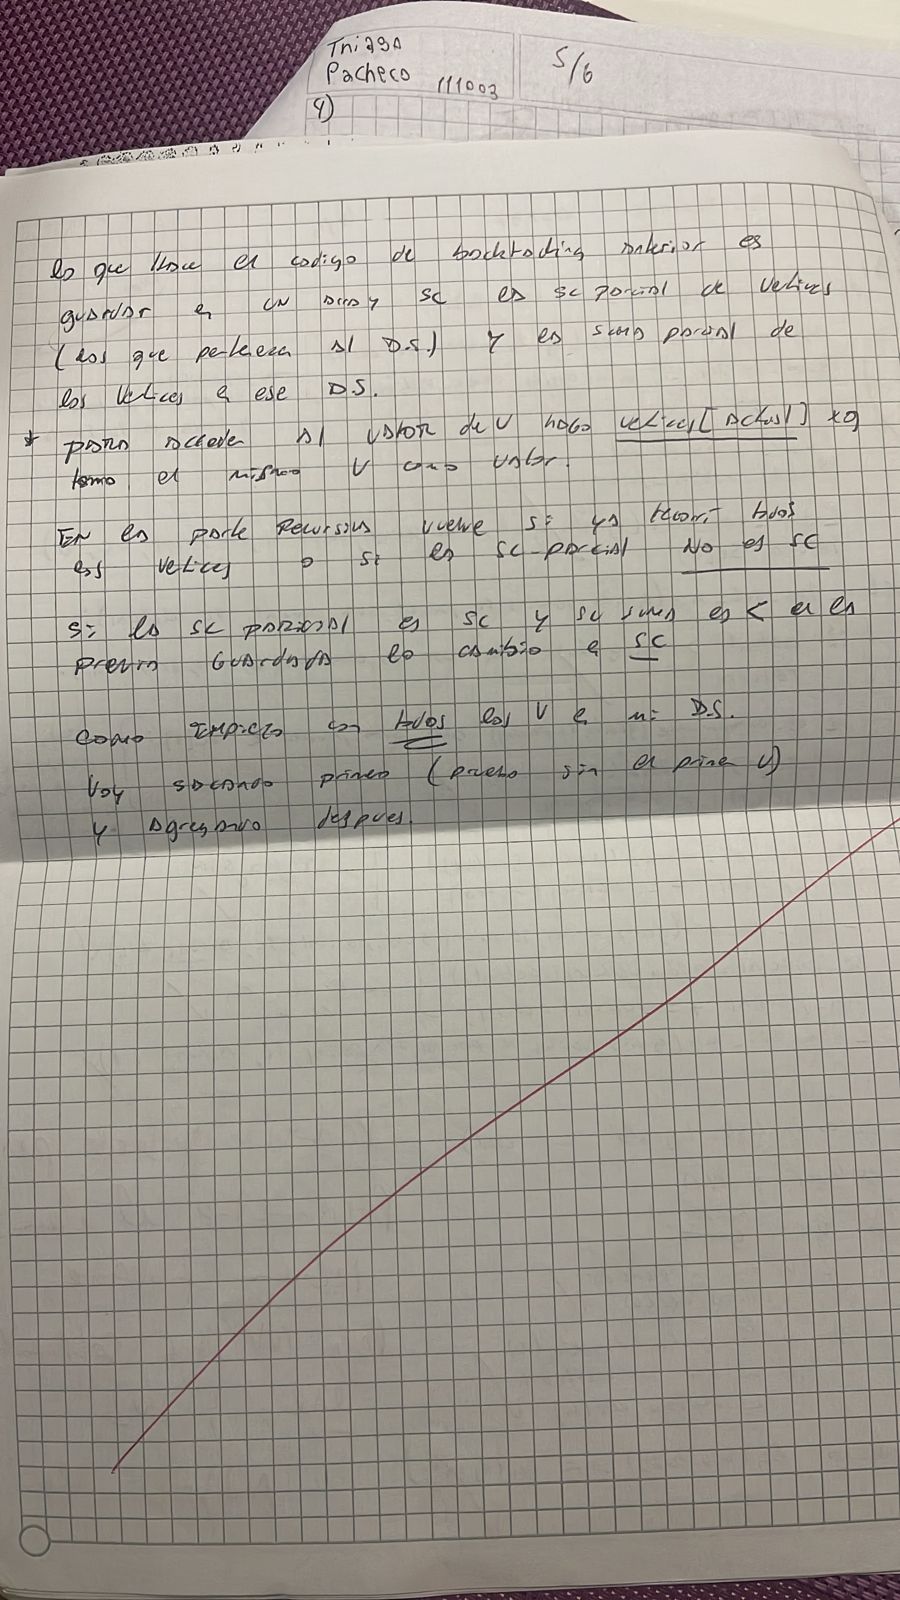 Thiago
Pacheco 111003
5/6
4)
lo que hace el codigo de backtracking anterior es
guardar en un array sc la sc parcial de vertices
(los que pertenecen al D.S.) y la suma parcial de
los vertices en ese D.S.
* para acceder al valor de v hago vertices[actual] xq
tomo el mismo v como valor.
En la parte recursiva vuelve si ya recorri todos
los vertices o si la sc-parcial No es sc
si la sc parcial es sc y su suma es < a la
previa guardada lo cambio en sc
como empiezo con todos los v en mi D.S.
voy sacando primero (pruebo sin el primer v)
y agregando despues.